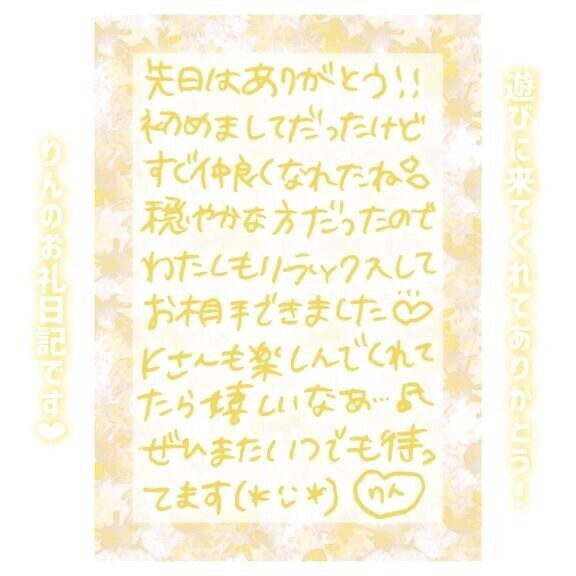 遊びに来てくれてありがとう!
先日はありがとう!!
初めましてだったけど
すぐ仲良くなれたね
穏やかな方だったので
わたしもリラックスして
お相手できました♡
Kさんも楽しんでくれて
たら嬉しいなあ…♪
ぜひまたいつでも待っ
てます(*¨*)
りん
りんのお礼日記です❤